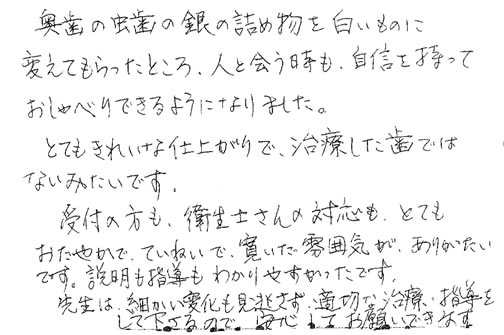 奥歯の虫歯の銀の詰め物を白いものに
変えてもらったところ、人と会う時も、自信を持って
おしゃべりできるようになりました。
とてもきれいな仕上がりで、治療した歯では
ないみたいです。
受付の方も、衛生士さんの対応も、とても
おだやかで、ていねいで、寛いだ雰囲気が、ありがたい
です。説明も指導もわかりやすかったです。
先生は、細かい変化も見逃さず、適切な治療・指導を
して下さるので、安心してお願いできます